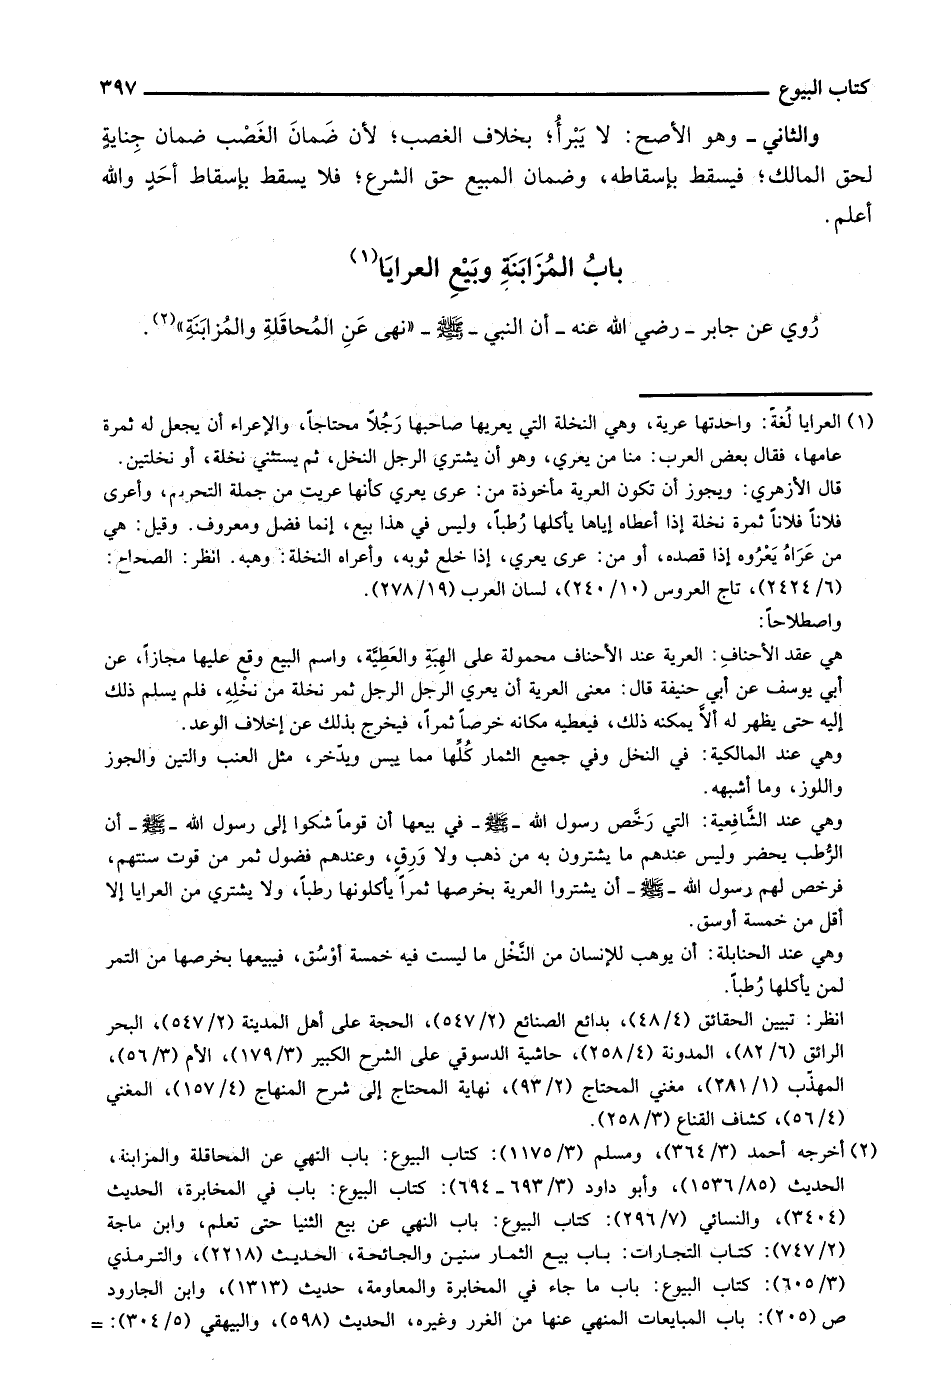 كتاب البيوع ٣٩٧
والثاني ـ وهو الأصح: لا يَبْرأُ؛ بخلاف الغصب؛ لأن ضَمانَ الغَصْب ضمان جِنايةٍ
لحق المالك؛ فيسقط بإسقاطه، وضمان المبيع حق الشرع؛ فلا يسقط بإسقاط أحَدٍ والله
أعلم.
بابُ المُزَابَنَةِ وبَيْعِ العرايَا(١)
رُوي عن جابر ـ رضي الله عنه ـ أن النبي ـ ﷺ ـ «نهى عَنِ المُحاقَلةِ والمُزابَنَةِ»(٢).
(١) العرايا لُغةً: واحدتها عرية، وهي النخلة التي يعريها صاحبها رَجُلاً محتاجاً، والإعراء أن يجعل له ثمرة
عامها، فقال بعض العرب: منا من يعري، وهو أن يشتري الرجل النخل، ثم يستثني نخلة، أو نخلتين.
قال الأزهري: ويجوز أن تكون العرية مأخوذة من: عرى يعري كأنها عريت من جملة التحريم، وأعرى
فلاناً فلاناً ثمرة نخلة إذا أعطاه إياها يأكلها رُطباً، وليس في هذا بيع، إنما فضل ومعروف. وقيل: هي
من عَرَاهُ يَعْرُوه إذا قصده، أو من: عرى يعري، إذا خلع ثوبه، وأعراه النخلة: وهبه. انظر: الصحاح:
(٢٤٢٤/٦)، تاج العروس (٢٤٠/١٠)، لسان العرب (٢٧٨/١٩).
واصطلاحاً:
هي عقد الأحناف: العرية عند الأحناف محمولة على الهِبَةِ والعَطِيَّة، واسم البيع وقع عليها مجازاً، عن
أبي يوسف عن أبي حنيفة قال: معنى العرية أن يعري الرجل الرجل ثمر نخلة من نخْلِه، فلم يسلم ذلك
إليه حتى يظهر له ألاَّ يمكنه ذلك، فيعطيه مكانه خرصاً ثمراً، فيخرج بذلك عن إخلاف الوعد.
وهي عند المالكية: في النخل وفي جميع الثمار كُلِّها مما يبس ويدّخر، مثل العنب والتين والجوز
واللوز، وما أشبهه.
وهي عند الشَّافِعية: التي رَخَّص رسول الله ـ ﷺ ـ في بيعها أن قوماً شكوا إلى رسول الله ـ ﷺ ـ أن
الرُّطب يحضر وليس عندهم ما يشترون به من ذهب ولا وَرِقٍ، وعندهم فضول ثمر من قوت سنتهم،
فرخص لهم رسول الله ـ ﷺ ـ أن يشتروا العرية بخرصها ثمراً يأكلونها رطباً، ولا يشتري من العرايا إلا
أقل من خمسة أوسق.
وهي عند الحنابلة: أن يوهب للإنسان من النَّخْل ما ليست فيه خمسة أوْسُق، فيبيعها بخرصها من التمر
لمن يأكلها رُطباً.
انظر: تبيين الحقائق (٤٨/٤)، بدائع الصنائع (٥٤٧/٢)، الحجة على أهل المدينة (٥٤٧/٢)، البحر
الرائق (٨٢/٦)، المدونة (٢٥٨/٤)، حاشية الدسوقي على الشرح الكبير (١٧٩/٣)، الأم (٥٦/٣)،
المهذّب (٢٨١/١)، مغني المحتاج (٩٣/٢)، نهاية المحتاج إلى شرح المنهاج (١٥٧/٤)، المغني
(٥٦/٤)، كشاف القناع (٢٥٨/٣).
(٢) أخرجه أحمد (٣٦٤/٣)، ومسلم (١١٧٥/٣): كتاب البيوع: باب النهي عن المحاقلة والمزابنة،
الحديث (١٥٣٦/٨٥)، وأبو داود (٦٩٣/٣ ـ ٦٩٤): كتاب البيوع: باب في المخابرة، الحديث
(٣٤٠٤)، والنسائي (٢٩٦/٧): كتاب البيوع: باب النهي عن بيع الثنيا حتى تعلم، وابن ماجة
(٧٤٧/٢): كتاب التجارات: باب بيع الثمار سنين والجائحة، الحديث (٢٢١٨)، والترمذي
(٦٠٥/٣): كتاب البيوع: باب ما جاء في المخابرة والمعاومة، حديث (١٣١٣)، وابن الجارود
ص (٢٠٥): باب المبايعات المنهي عنها من الغرر وغيره، الحديث (٥٩٨)، والبيهقي (٣٠٤/٥): =